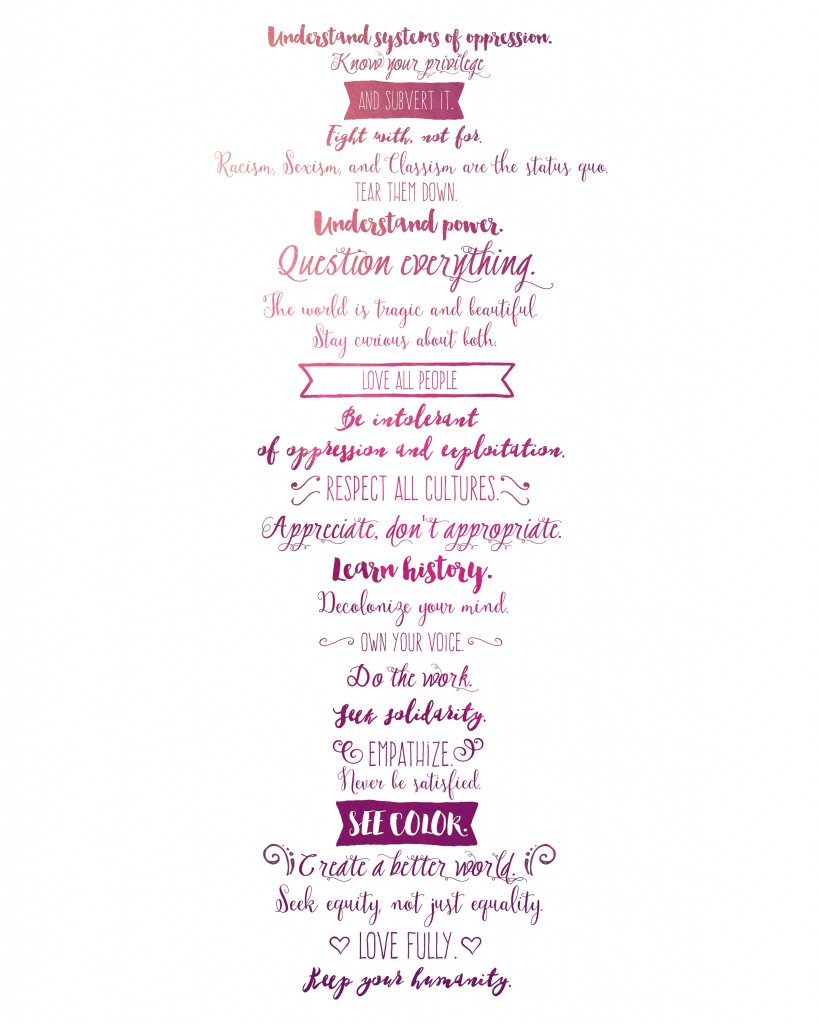 Understand systems of oppression.
Know your privilege
AND SUBVERT IT.
Fight with, not for.
Racism, Sexism, and Classism are the status quo.
TEAR THEM DOWN.
Understand power.
Question everything.
The world is tragic and beautiful
Stay curious about both.
LOVE ALL PEOPLE
Be intolerant
of oppression and exploitation.
RESPECT ALL CULTURES.
Appreciate, don't appropriate.
Learn history.
Decolonize your mind.
OWN YOUR VOICE.
Do the work.
Seek solidarity.
EMPATHIZE.
Never be satisfied.
SEE COLOR.
Create a better world.
Seek equity, not just equality.
LOVE FULLY.
Keep your humanity.